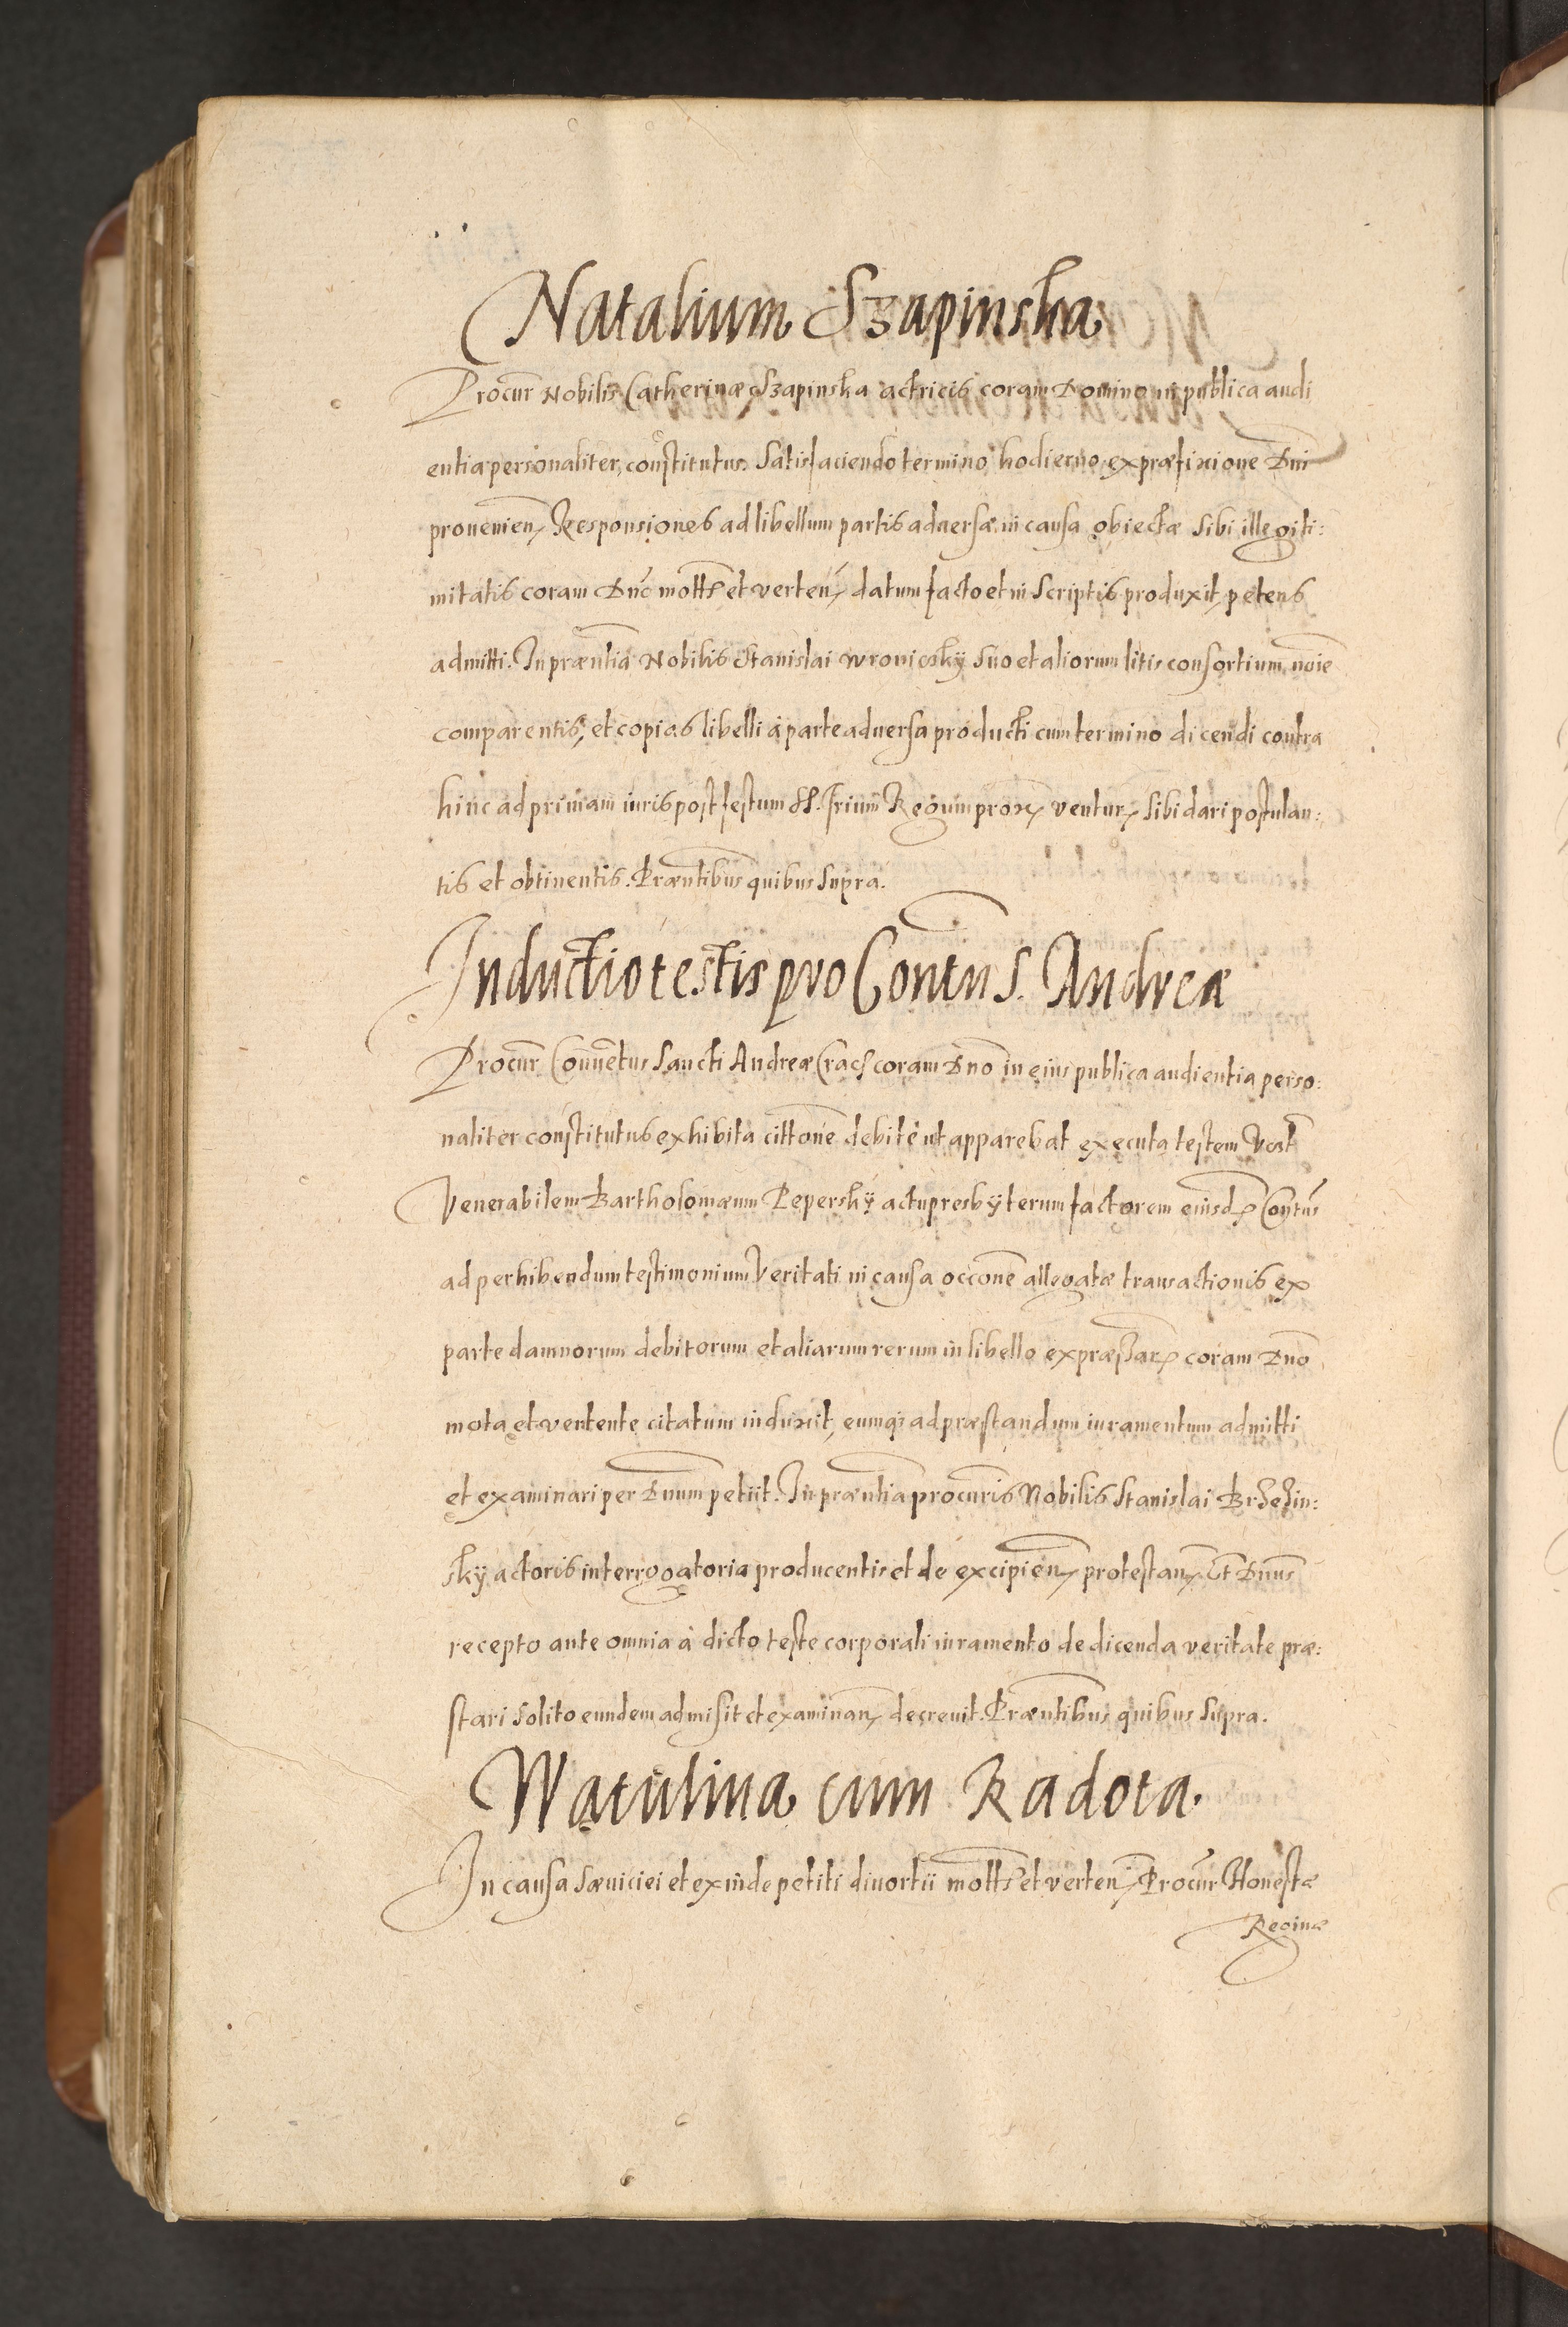 Natalium Szapinska
Procur Nobilis Catherinæ Szapinska actricis coram Domino in publica audi
entia personaliter constitutus Satisfaciendo termino hodierno ex præfixione Dni
provenien Responsiones ad libellum partis adversæ in causa obiectæ sibi illegiti:
mitatis coram Dno motæ et verten datum facto et in Scriptis produxit petens
admitti. In præntia Nobilis Stanislai Suo et aliorum litis consortium noie
comparentis, et copias libelli à parte adversa producti cum termino dicendi contra
hinc ad primam iuris post festum SS. Trium Regum prox ventur sibi dari postulan:
tis et obtinentis. Præntibus quibus Supra.
Inductio testis pro Contu S. Andreæ
Procur Conuētus Sancti Andreæ Crac coram Dno in eius publica audientia perso:
naliter constitutus exhibita cittone debitè ut apparebat executa testem
Venerabilem Bartholomæum Pepersky actu presbyterum factorem eiusd Contus
ad perhibendum testimonium Veritati in causa occone allegatæ transactionis ex
parte damnorum debitorum et aliarum rerum in libello expræssar coram Dno
mota et vertente citatum induxit, eumq; ad præstandum iuramentum admitti
et examinari per Dnum petiit. In præntia procuris Nobilis Stanislai Brzezin:
sky actoris interrogatoria producentis et de excipien protestan Et Dnus
recepto ante omnia à dicto teste corporali iuramento de dicenda veritate præ:
stari solito eundem admisit et examinan decrevit. Præntibus quibus Supra.
Watulina cum Radota
In causa Sæviciei et exinde petiti divortii motæ et verten Procur Honestæ
Reginæ